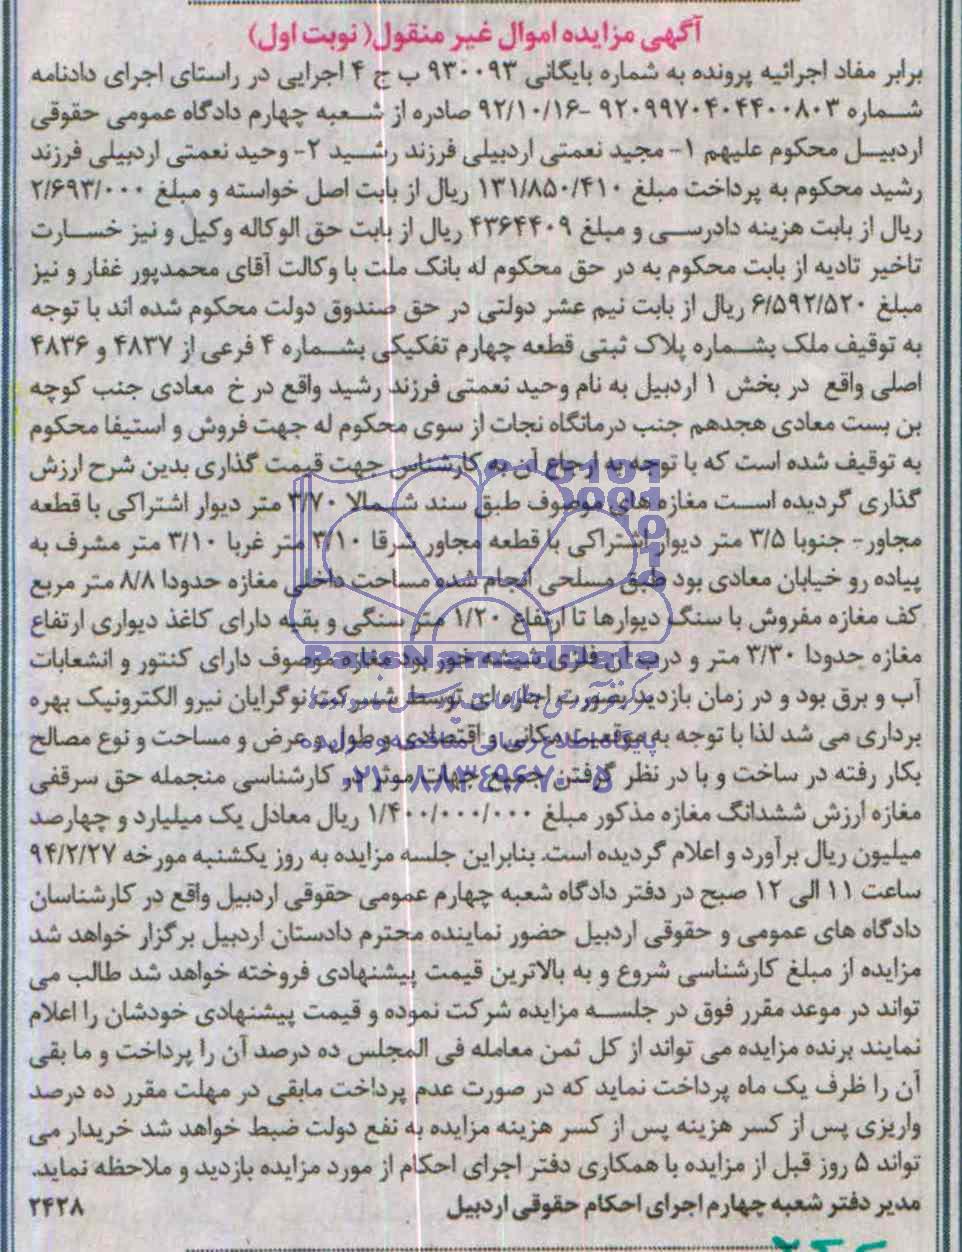 آگهی مزایده اموال غیر منقول( نوبت اول)
برابر مفاد اجرائیه پرونده به شماره بایگانی ۹۳۰۰۹۳ ب ج ۴ اجرایی در راستای اجرای دادنامه
شماره ۹۲۰۹۹۷۰۴۰۴۴۰۰۸۰۳ -۹۲/۱۰/۱۶ صادره از شعبه چهارم دادگاه عمومی حقوقی
اردبیل محکوم علیهم ۱- مجید نعمتی اردبیلی فرزند رشید ۲- وحید نعمتی اردبیلی فرزند
رشید محکوم به پرداخت مبلغ ۱۳۱/۸۵۰/۴۱۰ ریال از بابت اصل خواسته و مبلغ ۲/۶۹۳/۰۰۰
ریال از بابت هزینه دادرسی و مبلغ ۴۳۶۴۴۰۹ ریال از بابت حق الوکاله وکیل و نیز خسارت
تاخیر تادیه از بابت محکوم به در حق محکوم له بانک ملت با وکالت آقای محمدپور غفار و نیز
مبلغ ۶/۵۹۲/۵۲۰ ریال از بابت نیم عشر دولتی در حق صندوق دولت محکوم شده اند با توجه
به توقیف ملک بشماره پلاک ثبتی قطعه چهارم تفکیکی بشماره ۴ فرعی از ۴۸۳۷ و ۴۸۳۶
اصلی واقع در بخش ۱ اردبیل به نام وحید نعمتی فرزند رشید واقع در خ معادی جنب کوچه
بن بست معادی هجدهم جنب درمانگاه نجات از سوی محکوم له جهت فروش و استیفا محکوم
به توقیف شده است که با توجه به ارجاع آن به کارشناس جهت قیمت گذاری بدین شرح ارزش
گذاری گردیده است مغازه های موصوف طبق سند شمالا ۳/۷۰ متر دیوار اشتراکی با قطعه
مجاور- جنوبا ۳/۵ متر دیوار اشتراکی با قطعه مجاور شرقا ۳/۱۰ متر غربا ۳/۱۰ متر مشرف به
پیاده رو خیابان معادی بود طبق مسلحی انجام شده مساحت داخلی مغازه حدودا ۸/۸ متر مربع
کف مغازه مفروش با سنگ دیوارها تا ارتفاع ۱/۲۰ متر سنگی و بقیه دارای کاغذ دیواری ارتفاع
مغازه حدودا ۳/۳۰ متر و درب آن فلزی شیشه خور بود مغازه موصوف دارای کنتور و انشعابات
آب و برق بود و در زمان بازدید بصورت اجاره ای توسط شرکت نوگرایان نیرو الکترونیک بهره
برداری می شد لذا با توجه به موقعیت مکانی و اقتصادی و طول و عرض و مساحت و نوع مصالح
بکار رفته در ساخت و با در نظر گرفتن جمیع جهات موثر در کارشناسی منجمله حق سرقفلی
مغازه ارزش ششدانگ مغازه مذکور مبلغ ۱/۴۰۰/۰۰۰/۰۰۰ ریال معادل یک میلیارد و چهارصد
میلیون ریال برآورد و اعلام گردیده است. بنابراین جلسه مزایده به روز یکشنبه مورخه ۹۴/۲/۲۷
ساعت ۱۱ الی ۱۲ صبح در دفتر دادگاه شعبه چهارم عمومی حقوقی اردبیل واقع در کارشناسان
دادگاه های عمومی و حقوقی اردبیل حضور نماینده محترم دادستان اردبیل برگزار خواهد شد
مزایده از مبلغ کارشناسی شروع و به بالاترین قیمت پیشنهادی فروخته خواهد شد طالب می
تواند در موعد مقرر فوق در جلسه مزایده شرکت نموده و قیمت پیشنهادی خودشان را اعلام
نمایند برنده مزایده می تواند از کل ثمن معامله فی المجلس ده درصد آن را پرداخت و ما بقی
آن را ظرف یک ماه پرداخت نماید که در صورت عدم پرداخت مابقی در مهلت مقرر ده درصد
واریزی پس از کسر هزینه پس از کسر هزینه مزایده به نفع دولت ضبط خواهد شد خریدار می
تواند ۵ روز قبل از مزایده با همکاری دفتر اجرای احکام از مورد مزایده بازدید و ملاحظه نماید.
مدیر دفتر شعبه چهارم اجرای احکام حقوقی اردبیل ۲۴۲۸
ParsNamadData
پایگاه اطلاع رسانی مناقصه و مزایده
۰۲۱-۸۸۳۴۹۶۷۰-۵